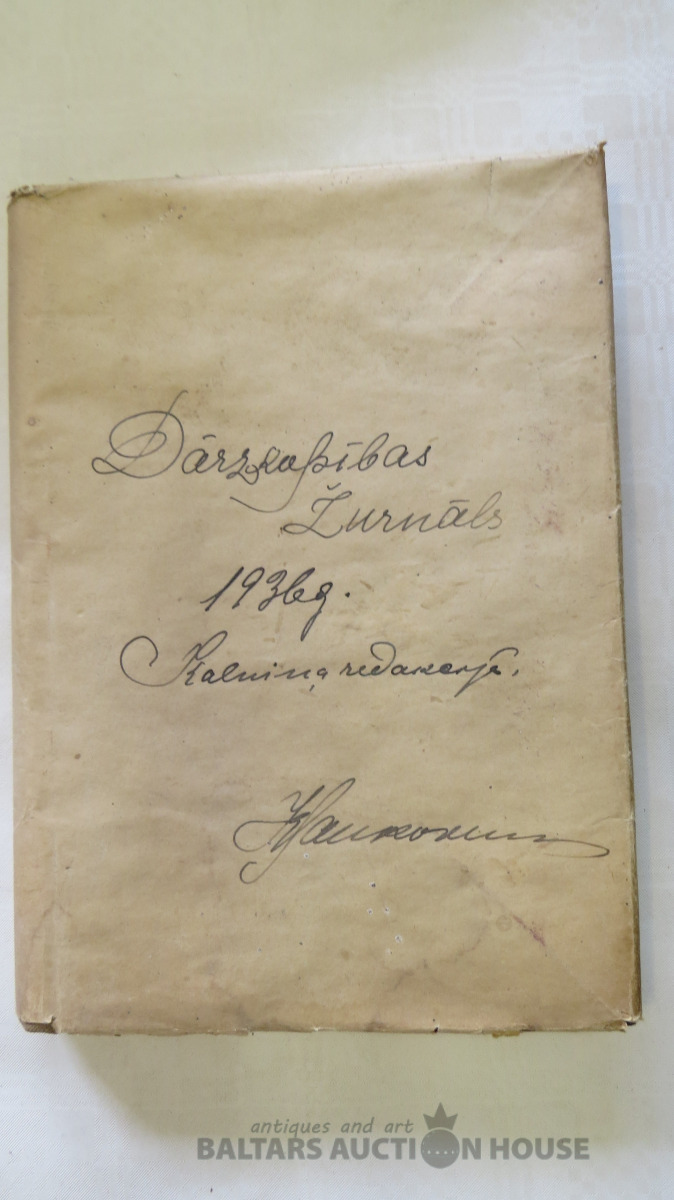 Dārzkopības
Žurnāls
1936g.
Kalniņa redakcijā.
antiques and art
BALTARS AUCTION HOUSE